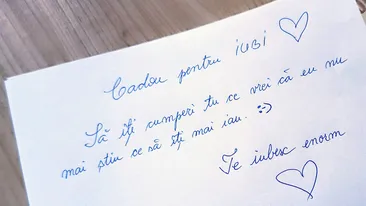 Cadou pentru iubi
Să îți cumperi tu ce vrei că eu nu
mai știu ce să îți mai iau. :-)
Te iubesc enorm